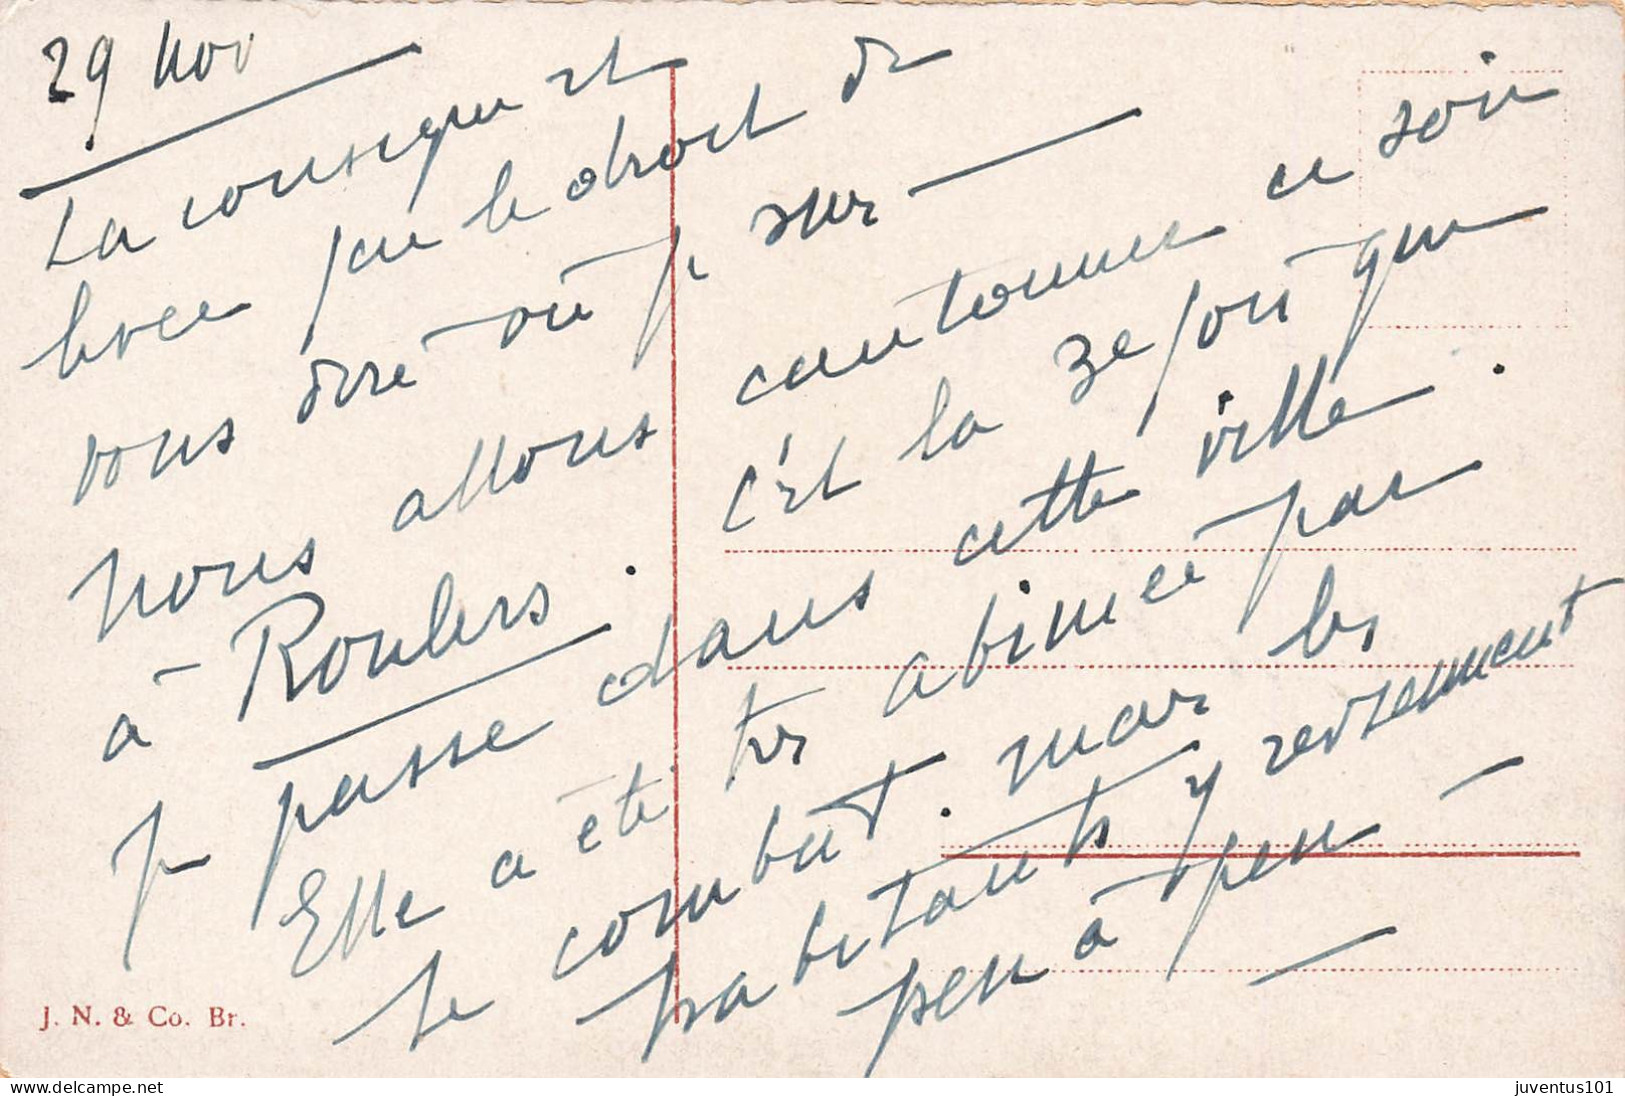 29 nov
La consigne est
levée j'ai le droit de
vous dire où je suis
nous allons cantonner ce soir
à Roulers. c'est la 2e fois que
je passe dans cette ville.
Elle a été très abimée par
le combat. mais les
habitants y reviennent
peu à peu
J. N. & Co. Br.
delcampe.net
juventus101